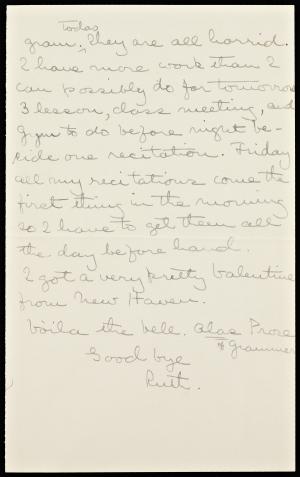 Today
gram. They are all horrid.
I have more work than I
can possibly do for tomorrow
3 lesson, class meeting, and
gym to do before night be-
side one recitation. Friday
all my recitations come the
first thing in the morning
so I have to get them all
the day before hand.
I got a very pretty Valentine
from New Haven.
Voila the bell. Alas Prose
& Grammer
Good bye
Ruth.